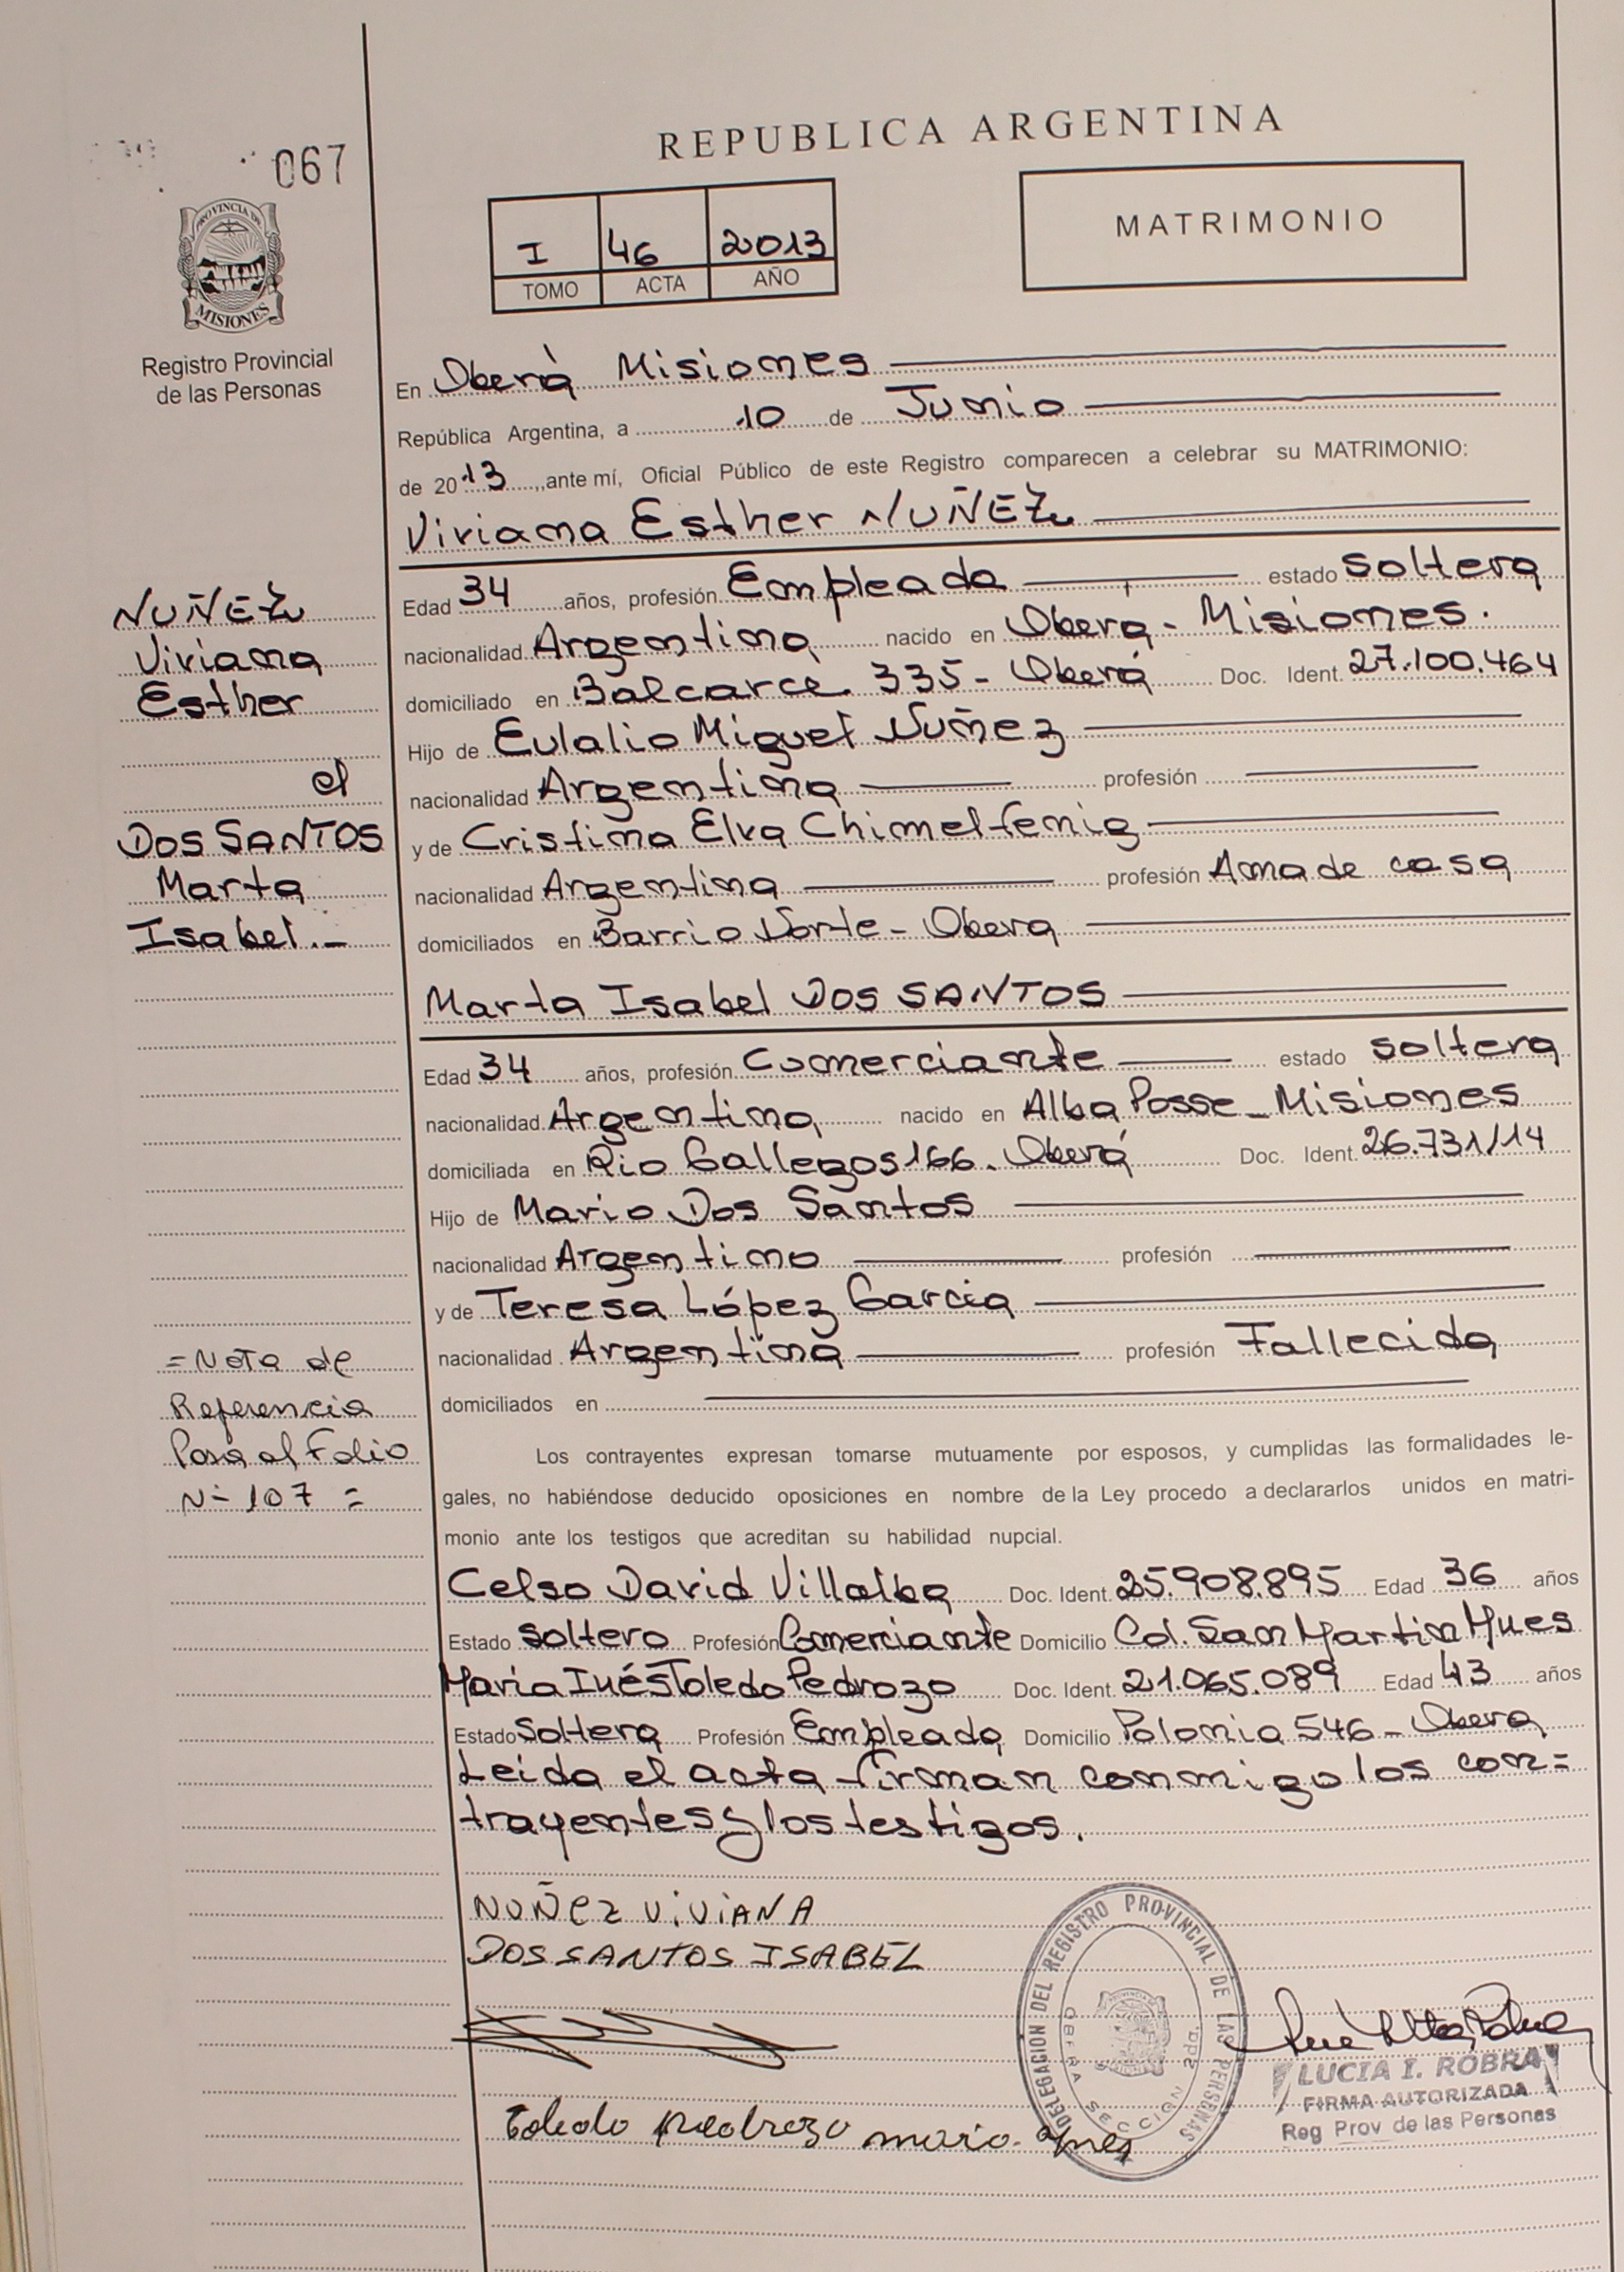 067
PROVINCIA DE
MISIONES
Registro Provincial
de las Personas
REPUBLICA ARGENTINA
I 46 2013
TOMO ACTA AÑO
MATRIMONIO
En Oberà Misiones
República Argentina, a 10 de Junio
de 2013, ante mí, Oficial Público de este Registro comparecen a celebrar su MATRIMONIO:
Viviana Esther NUÑEZ
Edad 34 años, profesión Empleada estado Soltera
nacionalidad Argentina nacido en Obera - Misiones.
domiciliado en Balcarce 335 - Oberá Doc. Ident. 27.100.464
Hijo de Eulalio Miguel Nuñez
nacionalidad Argentina profesión
y de Cristina Elva Chimelfenig
nacionalidad Argentina profesión Ama de casa
domiciliados en Barrio Norte - Obera
Marta Isabel DOS SANTOS
Edad 34 años, profesión Comerciante estado soltera
nacionalidad Argentina nacido en Alba Posse - Misiones
domiciliada en Rio Gallegos 166. Oberá Doc. Ident. 26.731/14
Hijo de Mario Dos Santos
nacionalidad Argentino profesión
y de Teresa López Garcia
nacionalidad Argentina profesión Fallecida
domiciliados en
Los contrayentes expresan tomarse mutuamente por esposos, y cumplidas las formalidades le-
gales, no habiéndose deducido oposiciones en nombre de la Ley procedo a declararlos unidos en matri-
monio ante los testigos que acreditan su habilidad nupcial.
Celso David Villalba Doc. Ident. 25.908.895 Edad 36 años
Estado soltero Profesión Comerciante Domicilio Col. San Martin
María Inés Toledo Pedrozo Doc. Ident. 21.065.089 Edad 43 años
Estado Soltera Profesión Empleada Domicilio Polonia 546 - Obera
Leida el acta firman conmigo los con=
trayentes y los testigos.
NUÑEZ ViViANA
DOS SANTOS ISABEL
Toledo Pedrozo maria ines
DELEGACION DEL REGISTRO PROVINCIAL DE LAS PERSONAS
OBERA SECCION 2da.
LUCIA I. ROBRA
FIRMA AUTORIZADA
Reg Prov de las Personas
NUÑEZ
Viviana
Esther
el
DOS SANTOS
Marta
Isabel.-
= Nota de
Referencia
Pasa al Folio
N- 107 =